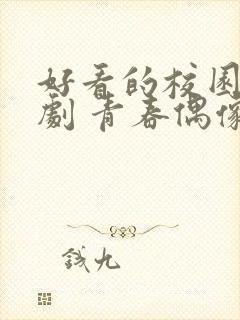 好看的校园
劇 青春偶像
钱九